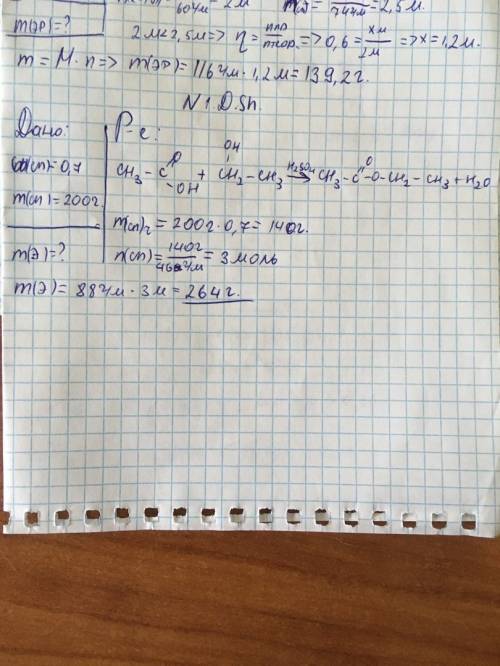 60г/м = 2м
74г/м = 2,5м.
m(эр)=?
2м<2,5м=> η = nпр/nтеор. => 0,6 = xм/2м => x=1,2м.
m = M · n => m(эр)= 116г/м · 1,2м = 139,2г.
N1 D.Sh.
Дано:
Р-е:
ω(сп)=0,7
OH
CH3 - C O - OH + CH2 - CH3 H2SO4 → CH3 - C O - O - CH2 - CH3 + H2O
m(сп)=200г.
m(сп)2 = 200г · 0,7 = 140г.
m(э)=?
n(сп)= 140г/46г/м = 3моль
m(э)= 88г/м · 3м = 264г.